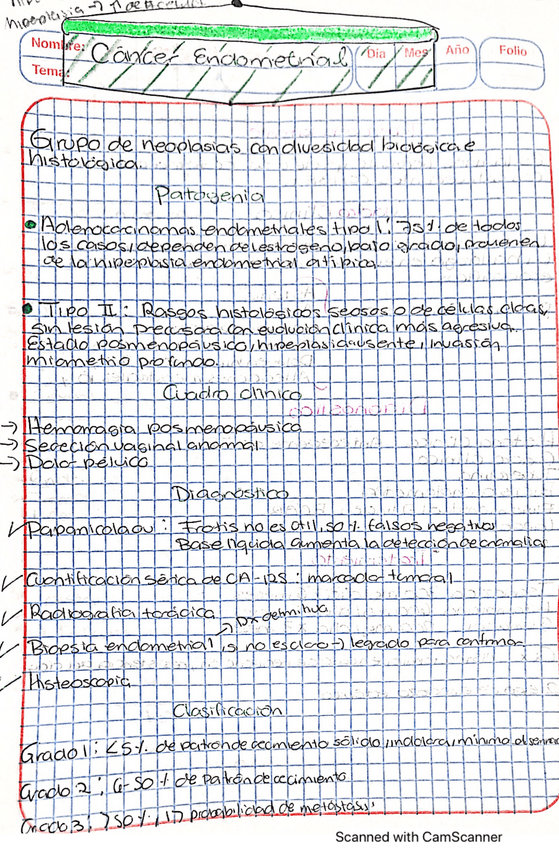 hiperplasia →
Nombre: Cáncer Endometrial Día Mes Año Folio
Tema:
Grupo de neoplasias con divesidad biológica e
histológica.
Patogenia
Adenocarcinomas endometriales tipo I: 75% de todos
los casos, dependen del estrógeno, bajo grado, provienen
de la hiperplasia endometrial atípica
Tipo II: Rasgos histológicos serosos o de células claras,
sin lesión precusora con evolución clínica más agresiva.
Estado posmenopáusico, hiperplasia ausente, invasión
miometrio profundo.
Cuadro clínico
→ Hemorragia posmenopáusica
→ Secreción vaginal anormal
→ Dolor pélvico
Diagnóstico
✓ Papanicolaou: Frotis no es útil, 50% falsos negativo
Base líquida aumenta la detección de anomalías
✓ Cuantificación sérica de CA-125: marcador tumoral
✓ Radiografía torácica
✓ Biopsia endometrial → Dx definitivo, si no es claro → legrado para confirmar
✓ Histeoscopia
Clasificación
Grado 1: <5% de patrón de crecimiento sólido, indolora, mínimo
Grado 2: 6-50% de patrón de crecimiento
Grado 3: >50%, probabilidad de metástasis
Scanned with CamScanner